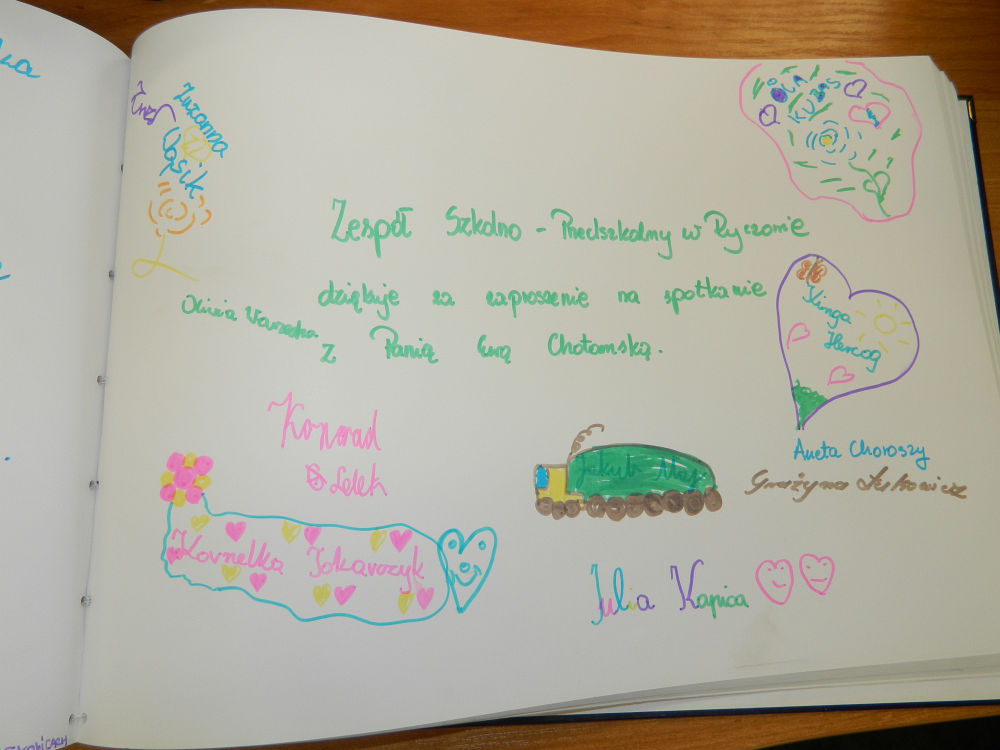 Zuzanna
Wąsik
OLA
KUBAS
Zespół Szkolno - Przedszkolny w Ryczowie
dziękuje za zaproszenie na spotkanie
z Panią Ewą Chotomską.
Oliwia
Kinga
Hercog
Konrad
Lelek
Jakub Maj
Aneta Choroszy
Grażyna
Kornelka Tokarczyk
Julia Kapica